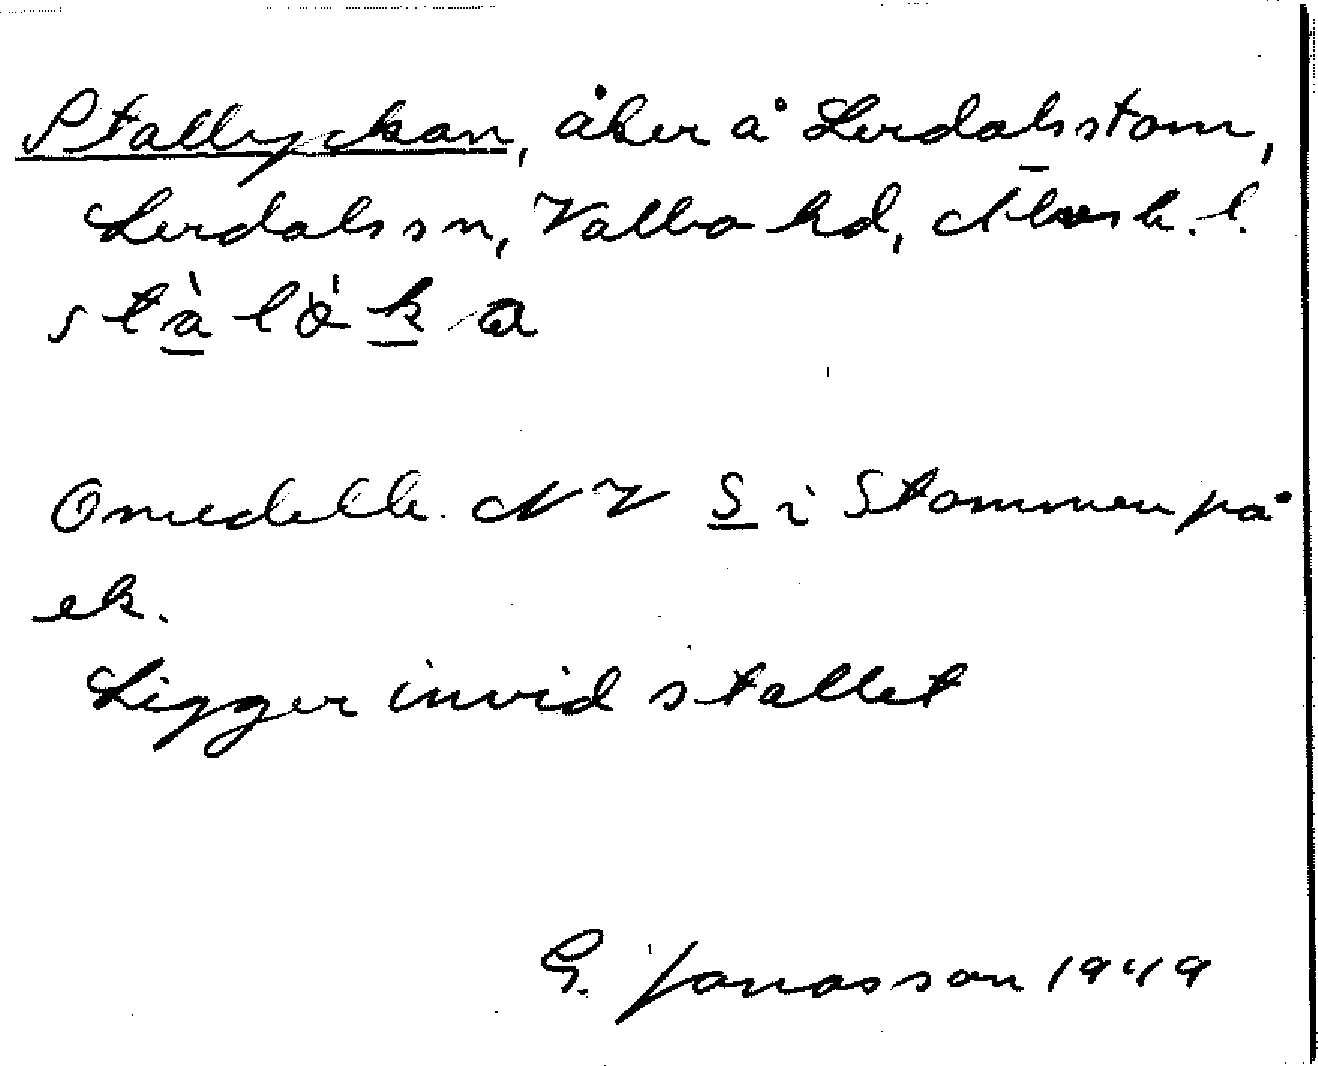 Stallyckan, åker å Lerdalsstom,
Lerdals sn, Valbo hd, Älvsb. l.
stàlö́ka
Omedelb. NV S i Stommen på
ek.
Ligger invid stallet
G. Jonasson 1949